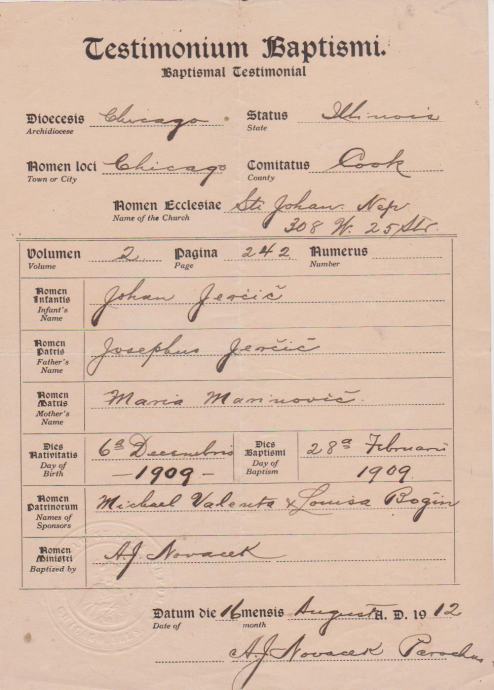 Testimonium Baptismi.
Baptismal Testimonial
Dioecesis Chicago Status Illinois
Archidiocese State
Nomen loci Chicago Comitatus Cook
Town or City County
Nomen Ecclesiae Sti Johan. Nep
Name of the Church 308 W. 25 Str.
Volumen 2 Pagina 242 Numerus
Volume Page Number
Nomen Infantis Johan Jerčić
Infant's Name
Nomen Patris Josephus Jerčić
Father's Name
Nomen Matris Maria Marinović
Mother's Name
Dies Nativitatis 6a Decembris Dies Baptismi 28a Februarii
Day of Birth - 1909 - Day of Baptism 1909
Nomen Patrinorum Michael Valenta & Louisa Bogin
Names of Sponsors
Nomen Ministri A.J. Novacek
Baptized by
Datum die 16 mensis August A. D. 1912
Date of month
A.J. Novacek Parochus